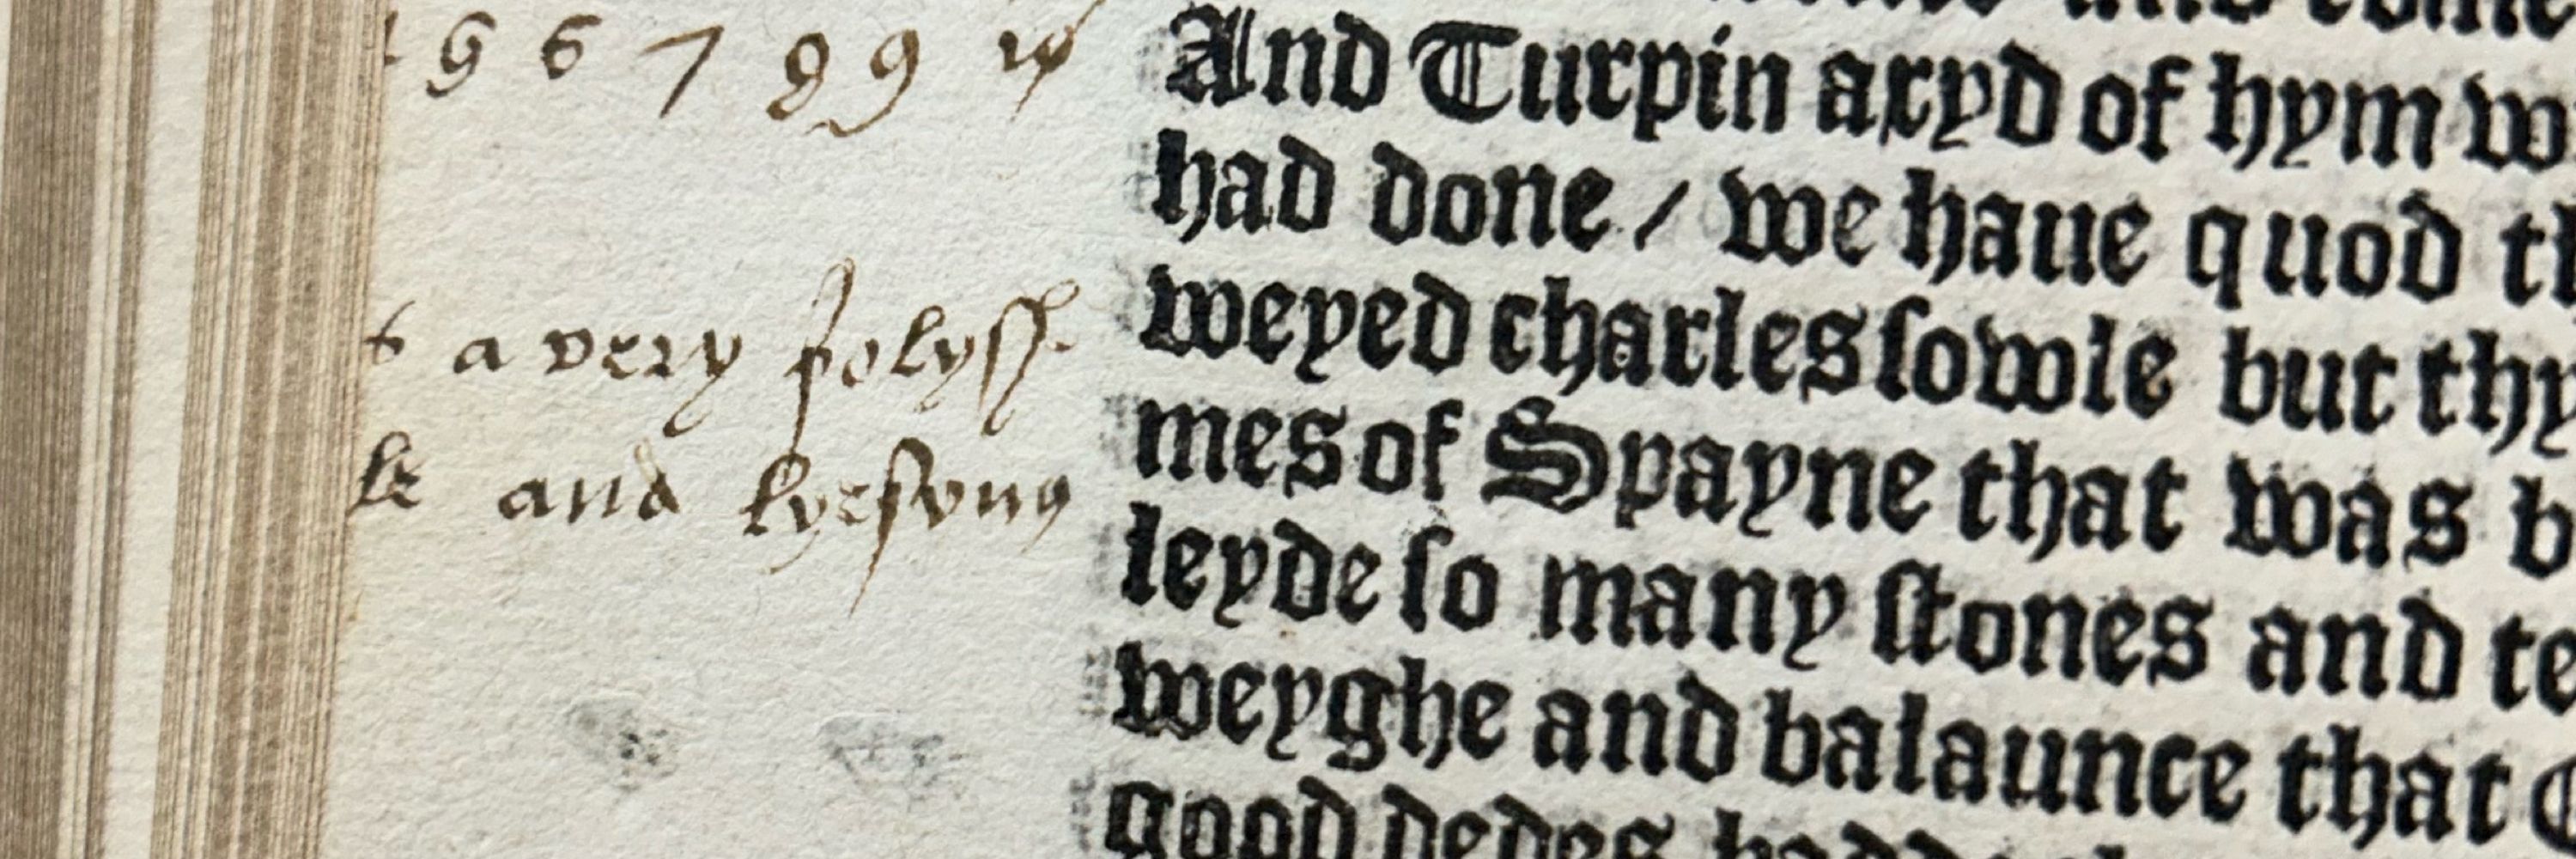 5 6 7 8 9 10
a very folyssh
le and lyesong
And Turpin axyd of hym w
had done / we haue quod th
weyed charles sowle but thy
mes of Spayne that was b
leyde so many stones and te
weyghe and balaunce that C
good dedes